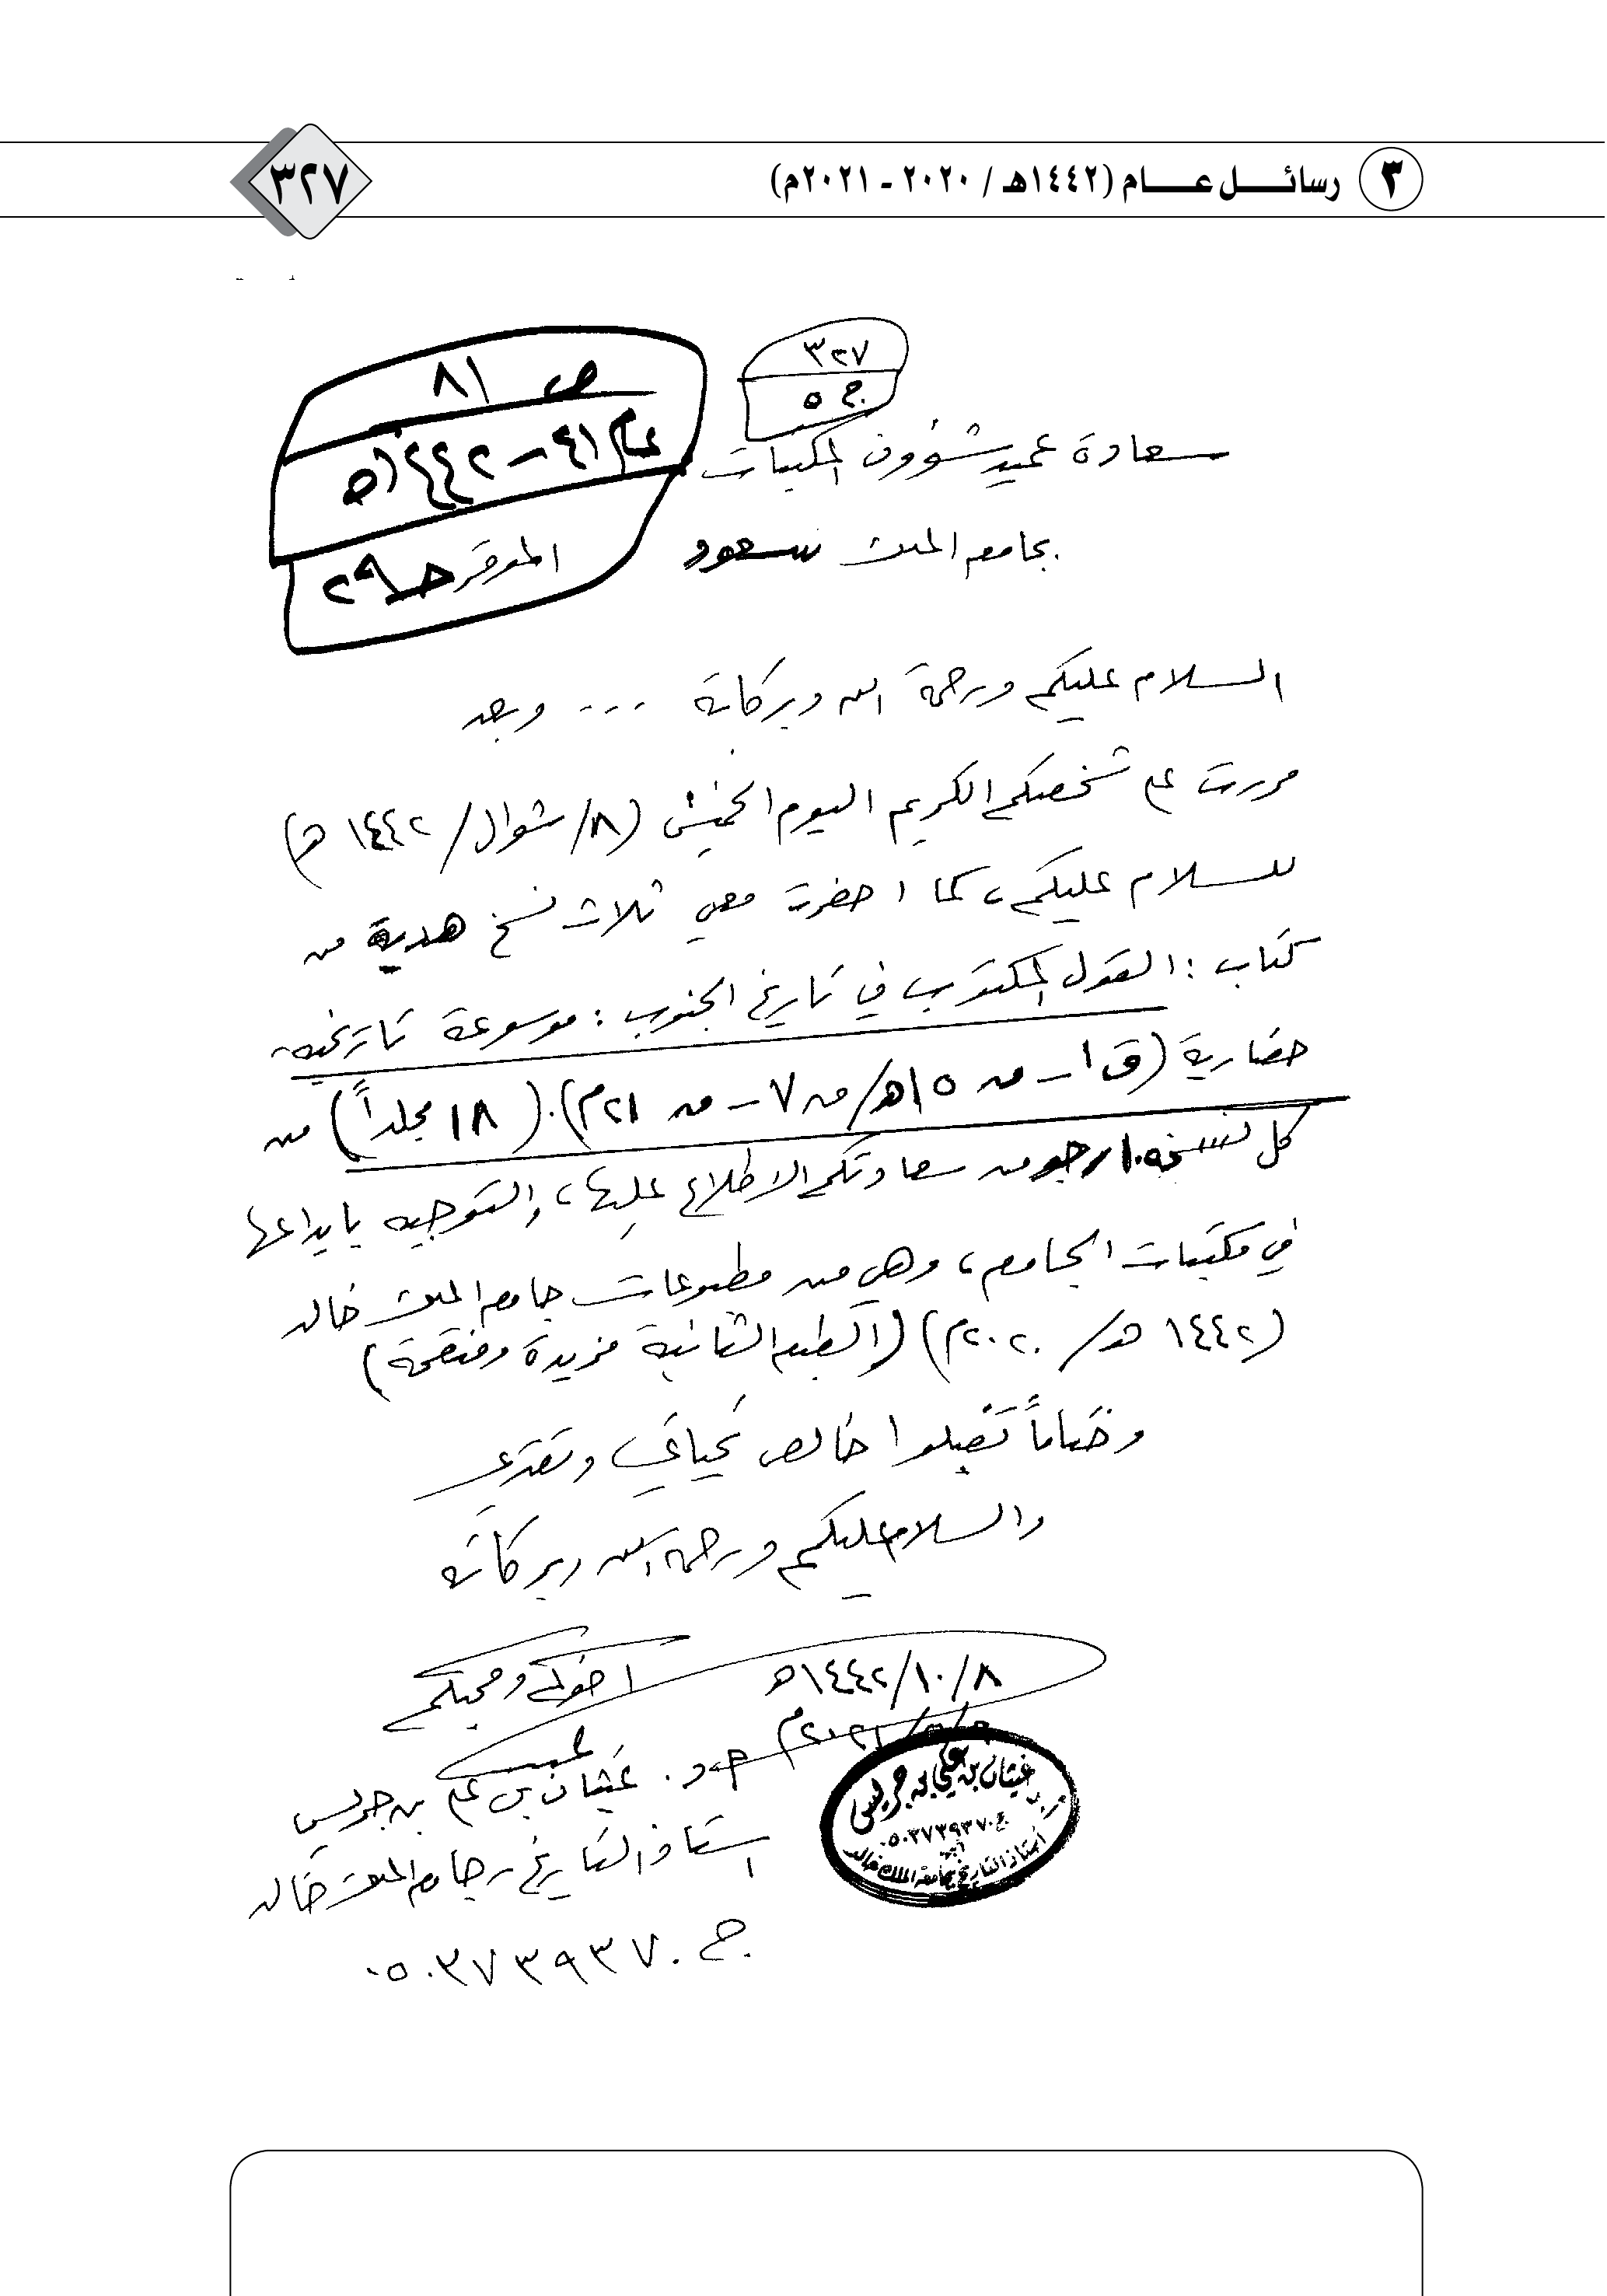 ٣ رسائل عام (١٤٤٢هـ / ٢٠٢٠ - ٢٠٢١م)
٣٢٧
٣٢٧
ج ٥
ص ٨١
عام ٤١ – ١٤٤٢هـ
ج ٢٩
سعادة عميد شؤون المكتبات
بجامعة الملك سعود الموقر
السلام عليكم ورحمة الله وبركاته ... وبعد
مررت على شخصكم الكريم اليوم الخميس (٨/ شوال / ١٤٤٢هـ)
للسلام عليكم، كما احضرت معي ثلاث نسخ هدية من
كتاب : القول المكتوب في تاريخ الجنوب : موسوعة تاريخية
حضارية (ق ١ – ق ١٥هـ/ ق ٧ – ق ٢١م). (١٨ مجلداً) من
كل نسخة. ارجو من سعادتكم الاطلاع عليها، والتوجيه بايداعها
في مكتبات الجامعة، وهي من مطبوعات جامعة الملك خالد
(١٤٤٢ هـ / ٢٠٢٠م) (الطبعة الثانية مزيدة ومنقحة)
وختاماً تقبلوا خالص تحياتي وتقديري
والسلام عليكم ورحمة الله وبركاته
٨/١٠/١٤٤٢هـ
اخوكم ومحبكم
أ. د. غيثان بن علي بن جريس
استاذ التاريخ بجامعة الملك خالد
ج ٠٥٠٣٧٣٩٣٧٠
أ.د. غيثان بن علي بن جريس
ج ٠٥٠٣٧٣٩٣٧٠
أستاذ التاريخ بجامعة الملك خالد